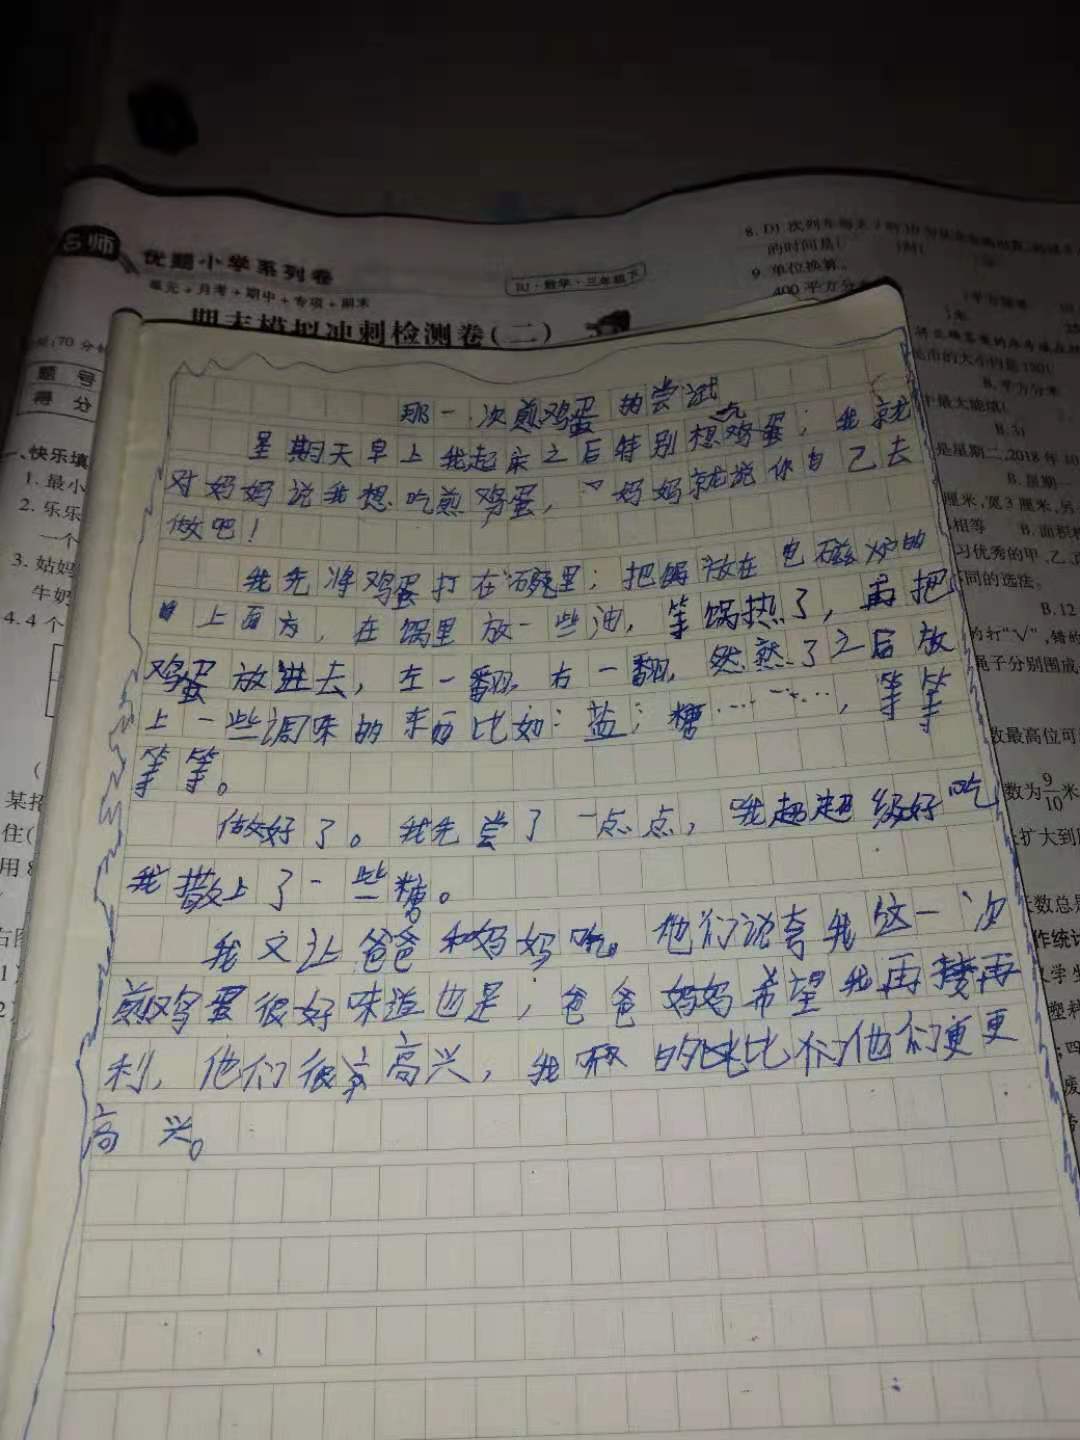 名师
优题小学系列卷
单元+月考+期中+专项+期末
BJ·数学·三年级下
期末模拟冲刺检测卷(二)
(70分钟
题号
得分
一、快乐填
1.最小
2.乐乐
一个
3.姑妈
牛奶
4.4个
(
某招
住(
用8
右图
的时间是(
9.单位换算。
400平方分
B.平方分米
十最大能填(
B.31
是星期二,2018年10
B.星期一
厘米,宽3厘米,另
相等 B.面积
习优秀的甲、乙、
不同的选法。
B.12
的打"√",错的
绳子分别围成
数最高位可
数为9/10米
扩大到
数总是
作统计
那一次煎鸡蛋的尝试
星期天早上我起床之后特别想吃鸡蛋;我就
对妈妈说我想吃煎鸡蛋,"妈妈就说你自己去
做吧!
我先将鸡蛋打在碗里;把锅放在电磁炉的
上面方,在锅里放一些油,等锅热了,再把
鸡蛋放进去,左一翻,右一翻,然熟了之后放
上一些调味的东西比如:盐;糖……,等等
等等。
做好了。我先尝了一点点,哦超超级好吃
我撒上了一些糖。
我又让爸爸和妈妈吃。他们说夸我这一次
煎鸡蛋很好味道也是;爸爸妈妈希望我再接再
利,他们很高兴,我 的 比他们更更
高兴。